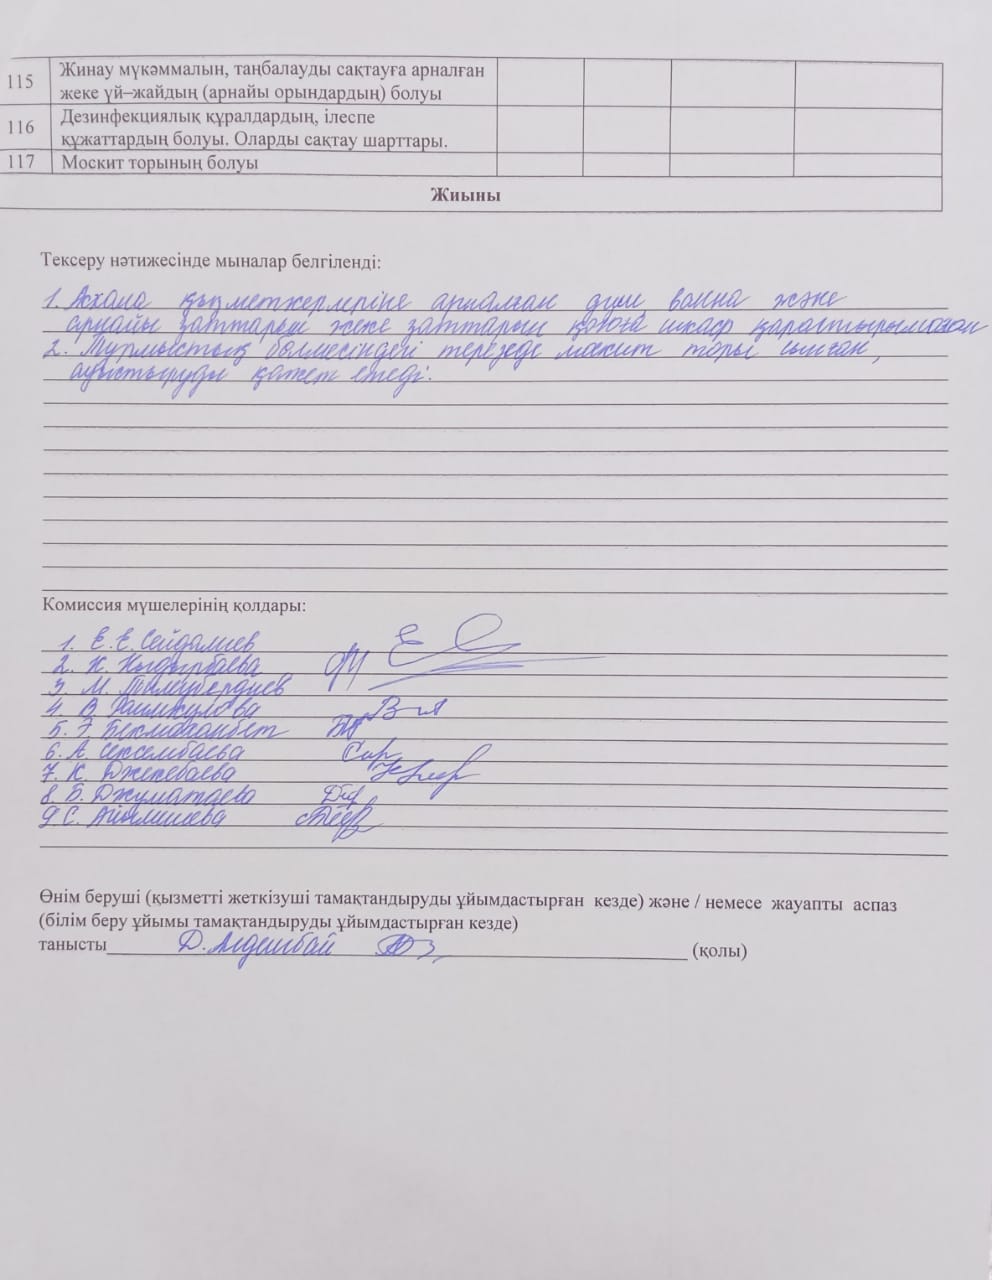 115 Жинау мүкәммалын, таңбалауды сақтауға арналған
жеке үй–жайдың (арнайы орындардың) болуы
116 Дезинфекциялық құралдардың, ілеспе
құжаттардың болуы. Оларды сақтау шарттары.
117 Москит торының болуы
Жиыны
Тексеру нәтижесінде мыналар белгіленді:
1. Асхана қызметкерлеріне арналған душ, ванна және
арнайы заттарын жеке заттарын қоюға шкаф қарастырылмаған
2. Тұрмыстық бөлмесіндегі терезеде москит торы сынған,
ауыстыруды қажет етеді.
Комиссия мүшелерінің қолдары:
1. Е. Е. Сейдалиев
2. К. Кыдырбаева
3. М. Тілеубердиев
4. В.
5. Э. Бекмаханбет
6. А. Серсембаева
7. К.
8. Б. Джуматаева
9 С.
Өнім беруші (қызметті жеткізуші тамақтандыруды ұйымдастырған кезде) және / немесе жауапты аспаз
(білім беру ұйымы тамақтандыруды ұйымдастырған кезде)
танысты Д. (қолы)